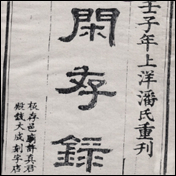 壬子年上洋潘氏重刊
閑存錄
板存邑廟許真君
殿錢大成刻字店